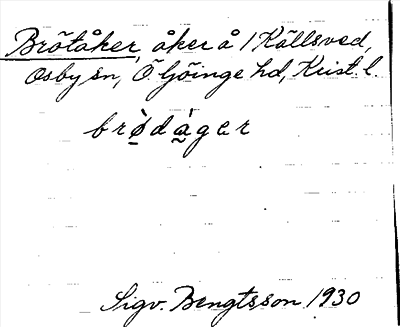 Brötåker, åker å 1 Källsved,
Osby sn, Ö. Göinge hd, Krist. l.
brø̀dàger
Sigv. Bengtsson 1930